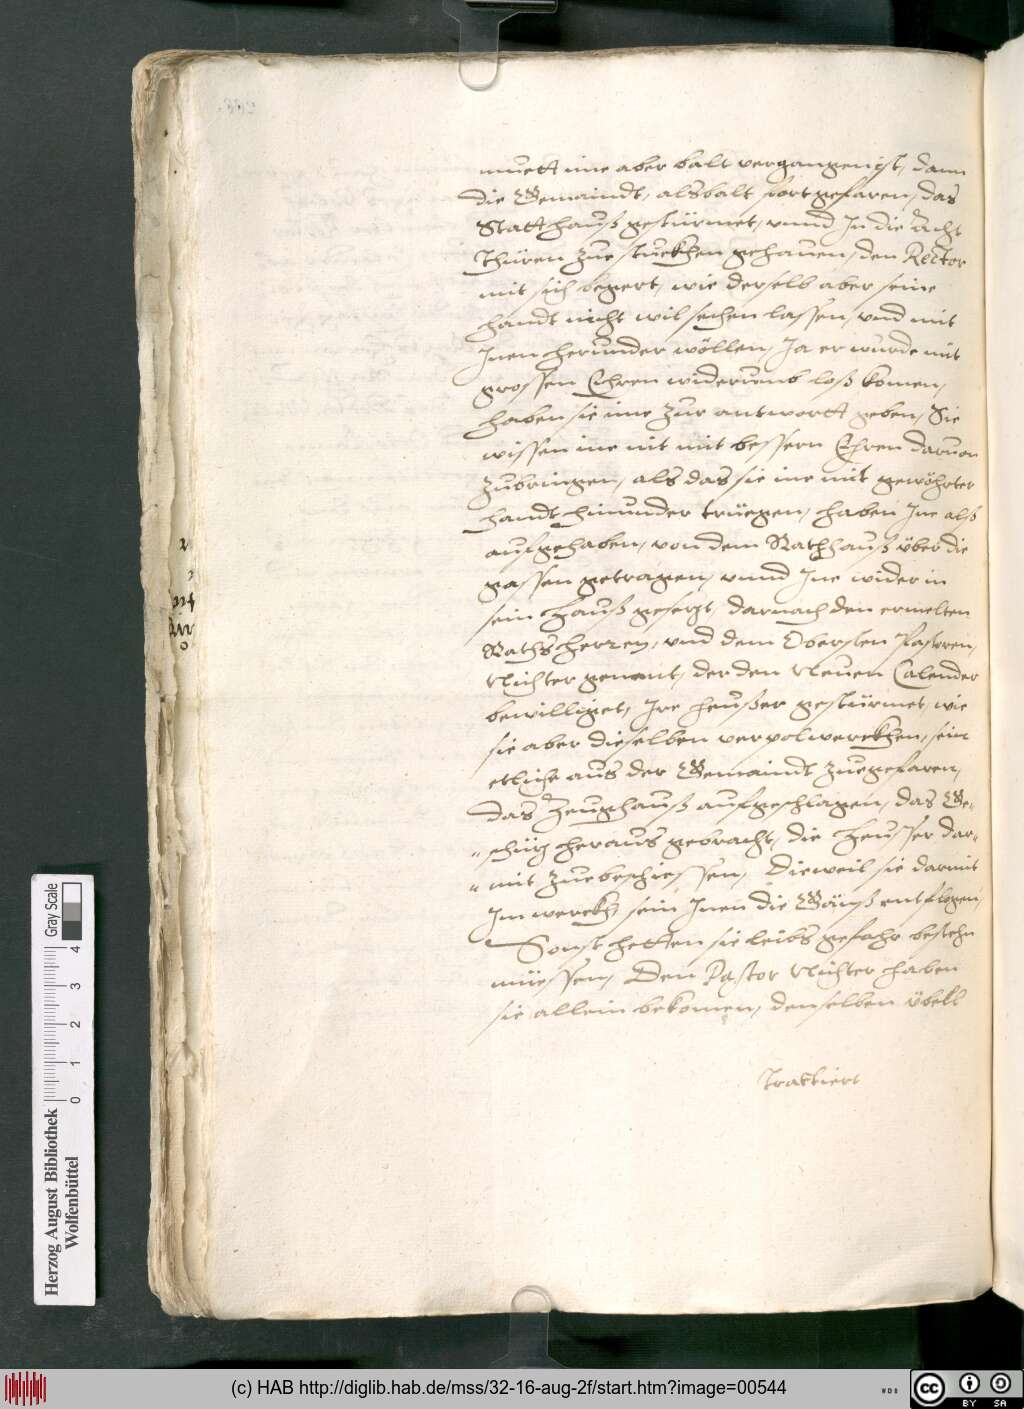 muett ime aber balt vergangen ist, dann
die Gemaindt, alsbalt fortgefaren, das
Statthauß gestürmet, vnnd In die Acht
Thüren zue stuckhen gehauen, den Rector
mit sich begert, wie derselb aber seine
handt nicht wil sechen lassen, vnd mit
Inen herunder wöllen, Ja er wurde mit
grossen Ehren widerumb loß komen,
haben sie ime zur antwortt geben, Sie
wissen ine nit mit bessern Ehren daruon
zubringen, als das sie ine mit gewöhrter
handt hinunder trüegen, haben Ine alß
aufgehaben, von dem Rathhauß über die
gassen getragen, vnnd Ine wider in
sein hauß gesezt, darnach den ermelten
Rathsherren, vnd dem Obersten Pastoren,
Richter genant, der den Neuen Calender
bewilliget, Ire heußer gestürmet, wie
sie aber dieselben verpolwerckhen, sein
etliche aus der Gemaindt zuegefaren,
das Zeughauß aufgeschlagen, das Ge-
schüz heraus gebracht, die heusser dar-
mit zuebeschiessen, Dieweil sie darmit
Im werckh sein Inen die Gänß entflogen,
Sonst hetten sie leibs gefahr bestehn
müessen, Den Pastor Richter haben
sie allein bekomen, denselben übell
Tracktiert
Herzog August Bibliothek
Wolfenbüttel
0 1 2 3 4
Gray Scale
(c) HAB http://diglib.hab.de/mss/32-16-aug-2f/start.htm?image=00544
WDB
cc BY SA